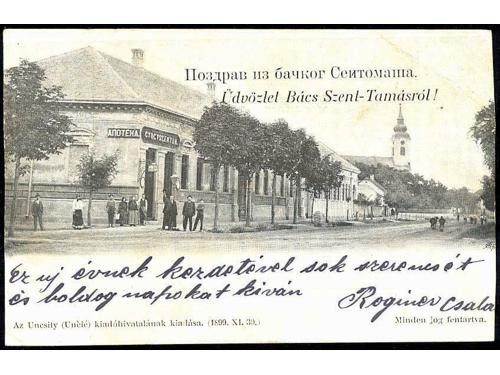 Поздрав из бачког Сентомаша.
Üdvözlet Bács Szent-Tamásról!
АПОТЕКА.
GYÓGYSZERTÁR
Ez uj évnek kezdetével sok szerencsét
és boldog napokat kiván
Roginer Csalá
Az Uncsity (Унčić) kiadóhivatalának kiadása. (1899. XI. 30.)
Minden jog fentartva.